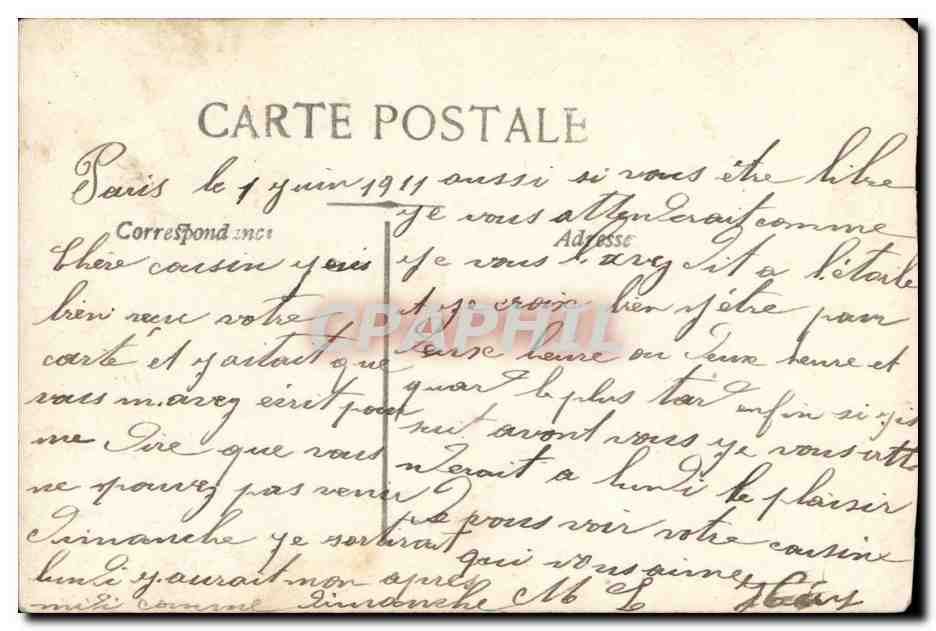 CARTE POSTALE
Paris le 1 juin 1911
Correspondance
Chère cousin j'ai
bien reçu votre
carte et j'aitait que
vous m'avez écrit pour
me dire que vous
ne pouvez pas venir
dimanche je sortirait
lundi j'aurait mon après
midi comme dimanche
aussi si vous être libre
je vous attenderait comme
Adresse
je vous l'avez dit a l'étoile
et je crois bien y être pour
deux heure ou deux heure et
quar le plus tard enfin si j'is
suit avant vous je vous atte
nderait a lundi le plaisir
de vous voir votre cousine
qui vous aime
M L
CPAPHIL